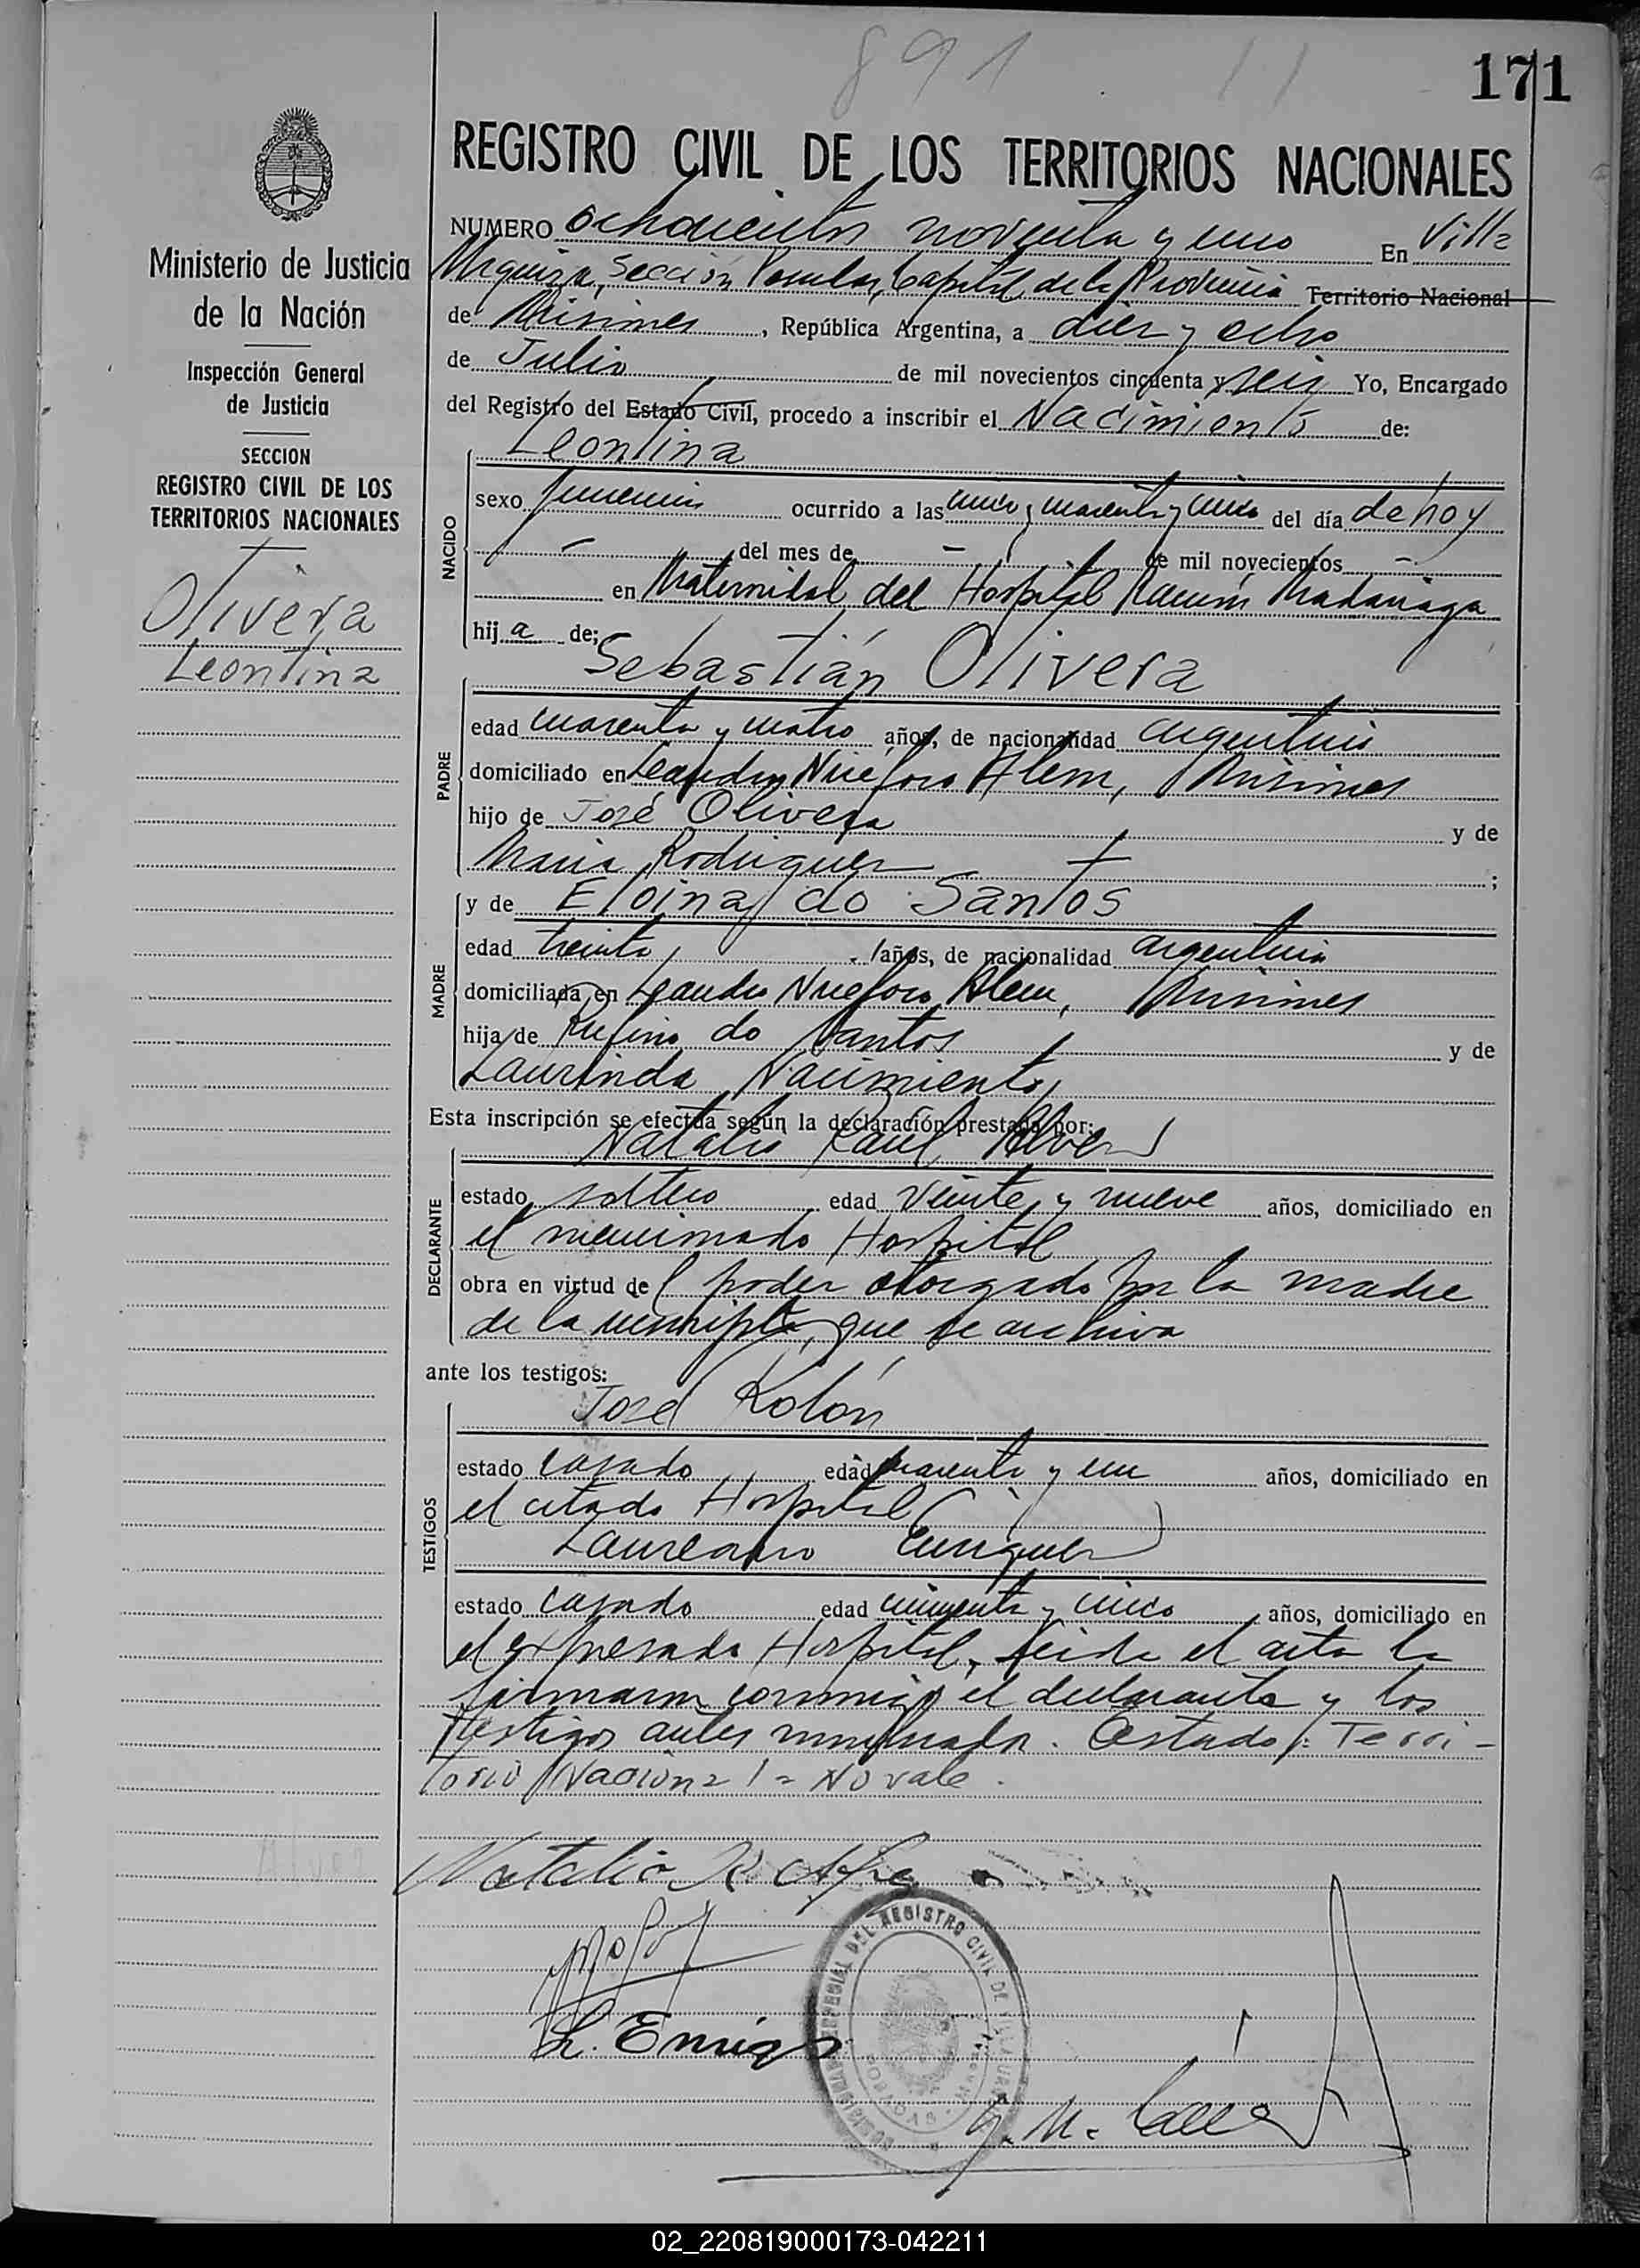 891
171
REGISTRO CIVIL DE LOS TERRITORIOS NACIONALES
Ministerio de Justicia
de la Nación
Inspección General
de Justicia
SECCION
REGISTRO CIVIL DE LOS
TERRITORIOS NACIONALES
Olivera
Leontina
NUMERO ochocientos noventa y uno En Villa
Urquiza, Sección Posadas, Capital de la Provincia Territorio Nacional
de Misiones, República Argentina, a diez y ocho
de Julio de mil novecientos cincuenta y seis Yo, Encargado
del Registro del Estado Civil, procedo a inscribir el Nacimiento de:
Leontina
NACIDO
sexo femenino ocurrido a las cinco y cuarenta y cinco del día de hoy
- del mes de - de mil novecientos -
en Maternidad del Hospital Ramón Madariaga
hija de;
Sebastián Olivera
PADRE
edad cuarenta y cuatro años, de nacionalidad argentino
domiciliado en Leandro Niceforo Alem, Misiones
hijo de José Olivera y de
Maria Rodriguez ;
y de Eloina do Santos
MADRE
edad treinta años, de nacionalidad argentina
domiciliada en Leandro Niceforo Alem, Misiones
hija de Rufino do Santos y de
Laurinda Nacimiento
Esta inscripción se efectúa según la declaración prestada por:
Natalio Raul Alvez
DECLARANTE
estado soltero edad veinte y nueve años, domiciliado en
el mencionado Hospital
obra en virtud del poder otorgado por la madre
de la inscripta, que se archiva
ante los testigos:
José Kolón
TESTIGOS
estado casado edad cuarenta y un años, domiciliado en
el citado Hospital
Laureano Enriquez
estado casado edad cincuenta y cinco años, domiciliado en
el expresado Hospital, leida el acta la
firmaron conmigo el declarante y los
testigos antes nombrados. Testado: Terri-
torio Nacional = No vale.
Natalio R
L. Enriq
DEL REGISTRO CIVIL DE VILLA URQUIZA
POSADAS
02_220819000173-042211